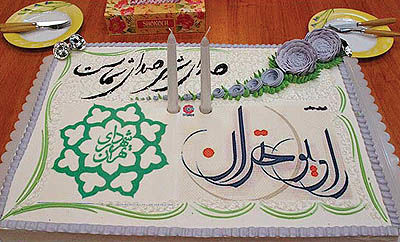 SHOKOUH
صدای شهر صدای شماست
شهرداری
تهران
رادیو تهران